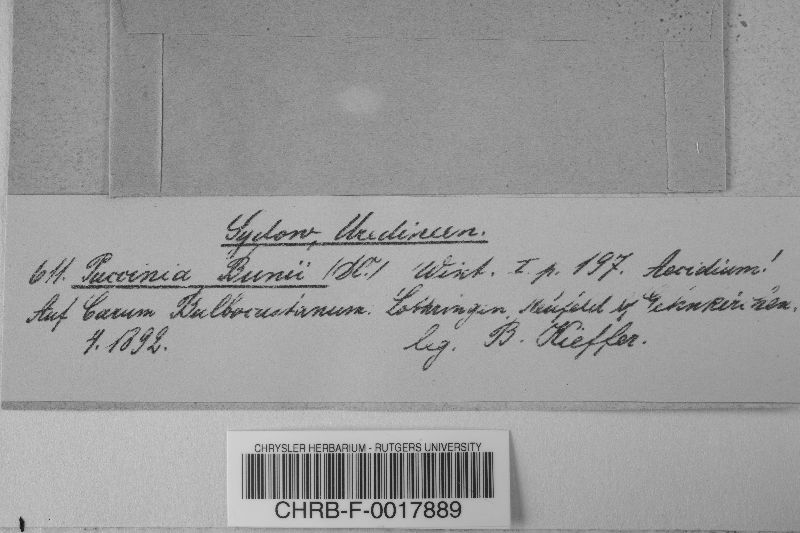 Sydow, Uredineen.
611. Puccinia Bunii (DC.) Wint. I. p. 197. Aecidium!
Auf Carum Bulbocastanum. Lothringen,
4. 1892. leg. B. Kieffer.
CHRYSLER HERBARIUM - RUTGERS UNIVERSITY
CHRB-F-0017889